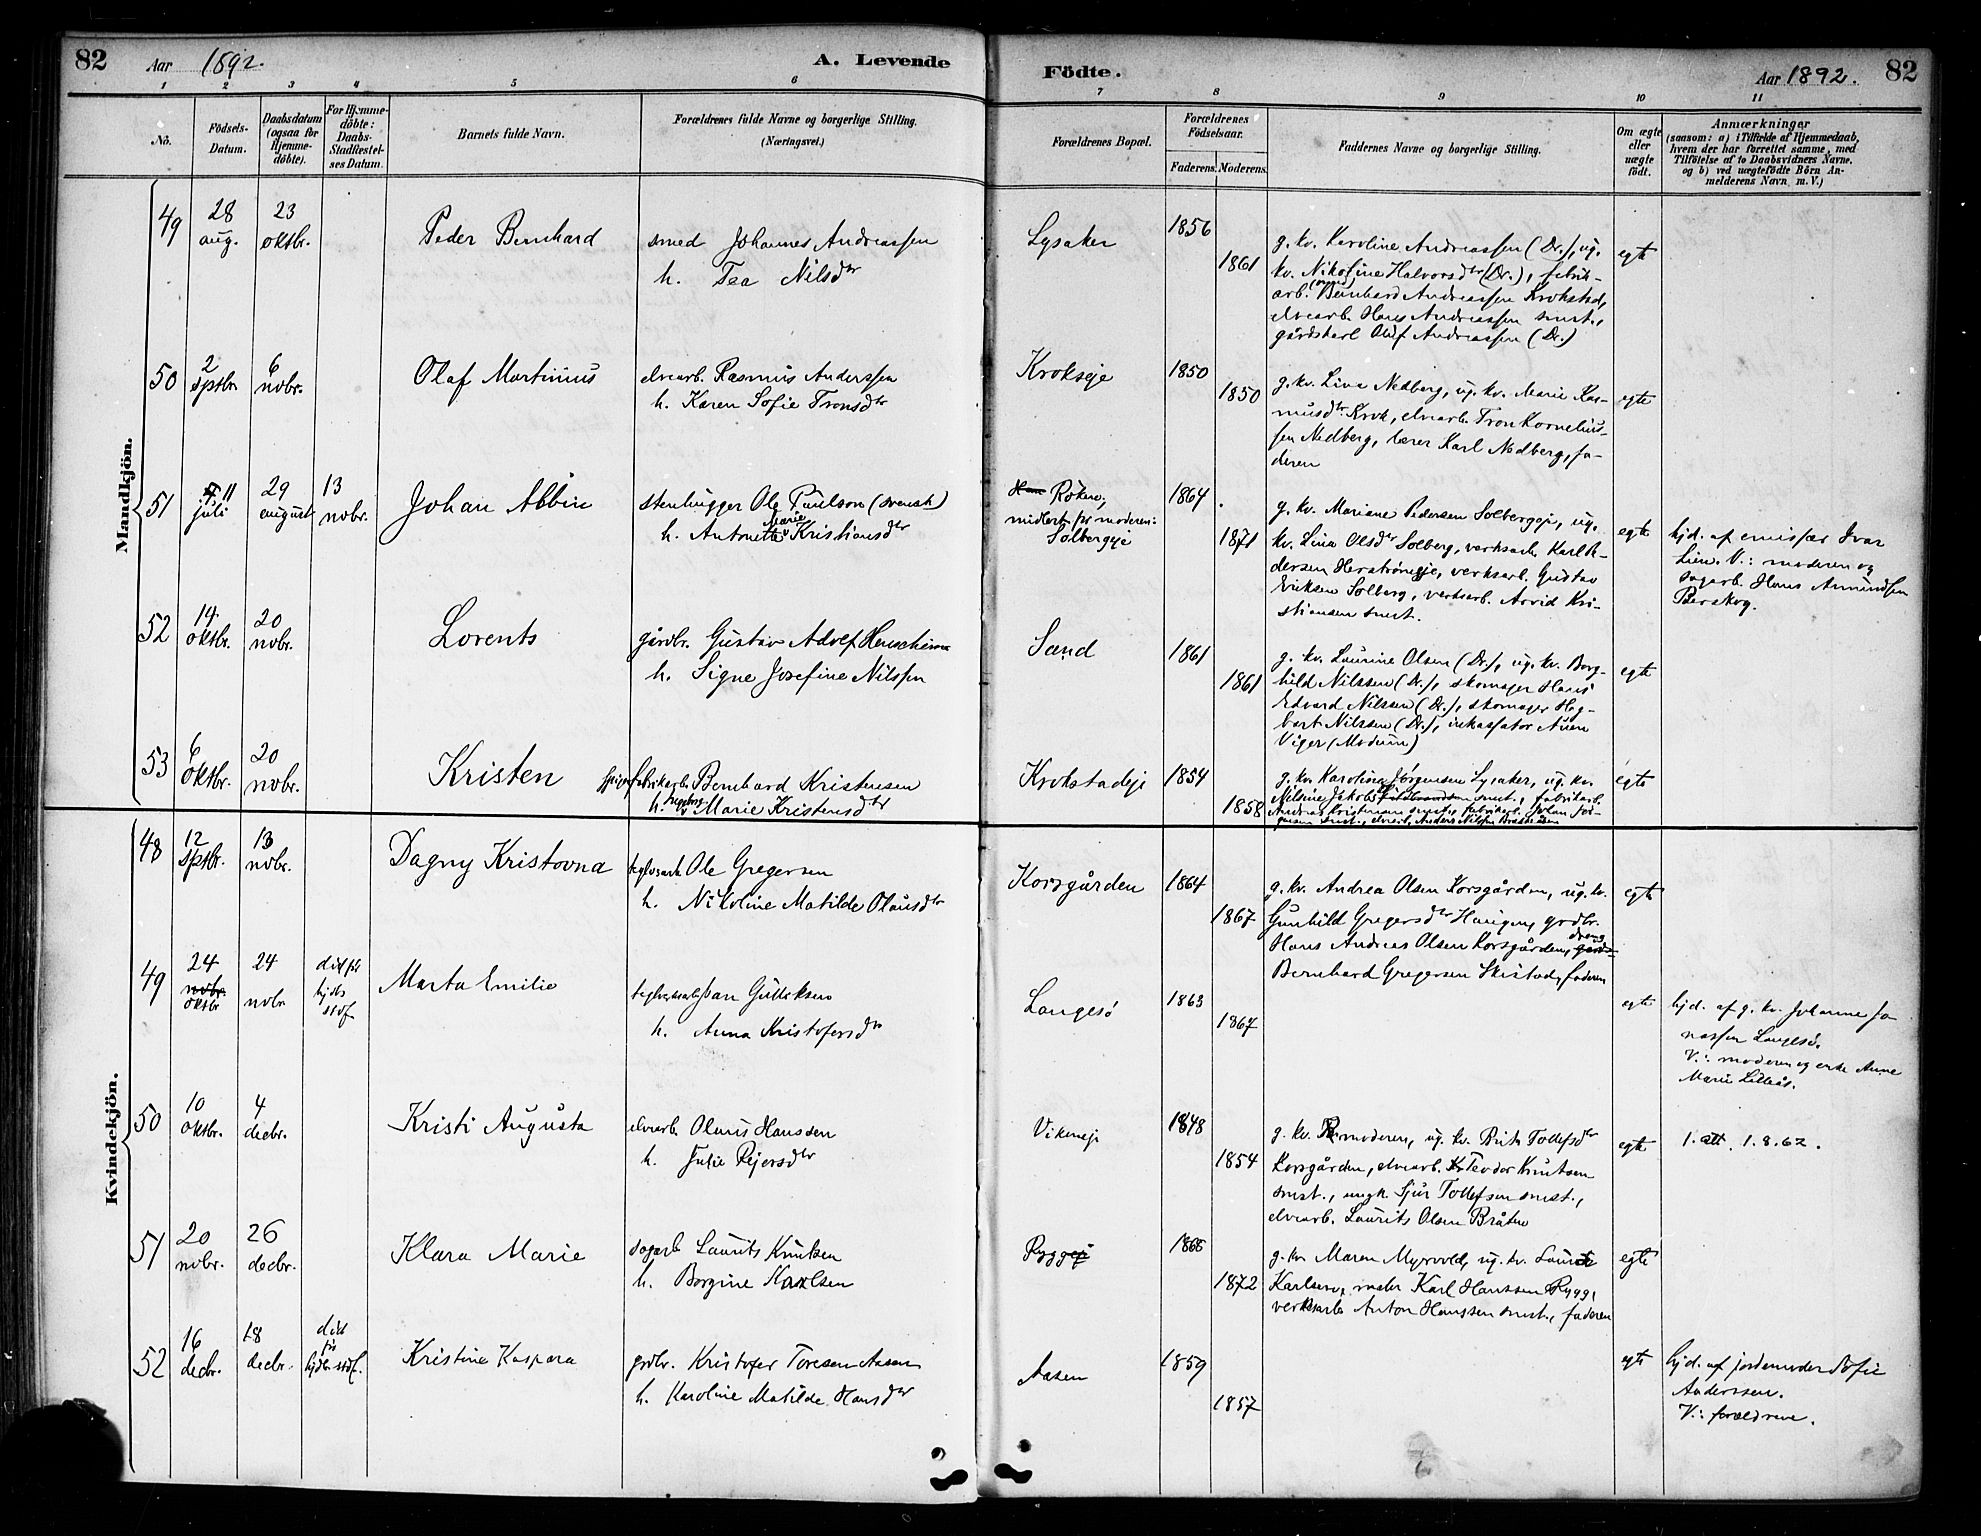 82 Aar 1892. A. Levende
Födte. Aar 1892. 82
1 2 3 4 5 6
7 8 9 10 11
No.
Födsels-
Datum.
Daabsdatum
(ogsaa for
Hjemme-
döbte).
For Hjemme-
döbte:
Daabs-
Stadfæstel-
ses Datum.
Barnets fulde Navn.
Forældrenes fulde Navne og borgerlige Stilling.
(Næringsvei.)
Forældrenes Bopæl.
Forældrenes
Födselsaar.
Faderens. Moderens.
Faddernes Navne og borgerlige Stilling.
Om ægte
eller
uægte
födt.
Anmærkninger
(saasom: a) i Tilfælde af Hjemmedaab,
hvem der har forrettet samme, med
Tilföielse af to Daabsvidners Navne.
og b) ved uægtefödte Börn An-
melderens Navn m. V.)
Mandkjön.
49
28
aug.
23
oktbr.
Peder Bernhard
smed Johannes Andreassen
h. Tea Nilsdtr
Lysaker
1856
1861
g. kv. Karoline Andreassen (Dr.), ug.
kv. Nikoline Halvorsdtr (Dr.), fabrik-
arb. Bernhard Andreassen Krokstad,
elvearb. Hans Andreassen smst.,
gårdskarl Oluf Andreassen (Dr.)
egte
50
2
sptbr.
6
novbr.
Olaf Martinius
elvearb. Rasmus Anderssen
h. Karen Sofie Tronsdtr
Krokseje
1850
1850
g. kv. Lina Nedberg, ug. kv. Marie Ras-
musdtr. Krok, elvearb. Tron Kornelius-
sen Nedberg, lærer Karl Nedberg, fa-
deren
egte
51
11
juli
29
august
13
novbr.
Johan Albin
stenhugger Ole Paulson (svensk)
h. Antonette Marie Kristiansdtr
Röken,
midlert. for moderen:
Solbergeje
1864
1871
g. kv. Mariane Pedersen Solbergeje, ug.
kv. Lina Olsdtr Solberg, verksarb. Karl P-
dersen Herstrømeje, verksarb. Gustav
Eriksen Solberg, verksarb. Arvid Kri-
stiansen smst.
egte
hjd. af emissær Ivar
Lien. V.: moderen og
sagarb. Hans Amundsen
Berskog.
52
14.
oktbr.
20
novbr.
Lorents
gårdbr. Gustav Adolf
h. Signe Josefine Nilssen
Sand
1861
1861
g. kv. Laurine Olsen (Dr.), ug. kv. Borg-
hild Nilssen (Dr.), skomager Hans
Edvard Nilssen (Dr.), skomager Hag-
bart Nilssen (Dr.), inkassator
Viger (Modum)
egte
53
6
oktbr.
20
novbr.
Kristen
fabrikarb. Bernhard Kristensen
h. Ingeborg Marie Kristensdtr
Krokstadeje
1854
1858
g. kv. Karoline Jörgensen Lysaker, ug. kv.
Nilsine Jakobs smst., fabrikarb.
Andreas Kristensen smst., fabrikarb. Johan Jör-
gensen smst., elvearb. Anders Nilssen
egte
Kvindekjön.
48
12
sptbr.
13
novbr.
Dagny Kristovna
teglverksarb Ole Gregersen
h. Nikoline Matilde Olausdtr
Korsgården
1864
1867
g. kv. Andrea Olsen Korsgården, ug. kv.
Gunhild Gregersdtr Haugen, grdbr.
Hans Andreas Olsen Korsgården, dreng
Bernhard Gregersen Skistad, faderen
egte
49
24
novbr.
oktbr
24
novbr
död før
hjds
stdf
Marta Emilie
teglverksarb Jan Gulliksen
h. Anna Kristofersdtr
Langesö
1863
1867
egte
hjd. af g. kv. Johanne Jo-
nassen Langesö.
V.: moderen og enke Anne
Marie Lilleås.
50
10
oktbr.
4
decbr.
Kristi Augusta
elvearb. Olaus Hanssen
h. Julie Rejersdtr
Vikeneje
1848
1854
g. kv. moderen, ug. kv. Brit Tollefsdtr
Korsgården, elvearb. Teodor Knutsen
smst., ungk. Sjur Tollefsen smst.,
elvearb. Laurits Olsen Bråten
egte
1. att. 1.8.62.
51
20
novbr.
26
decbr.
Klara Marie
sagarb Laurits Knutsen
h. Borgine Karlsen
Ryggeje
1866
1872
g. kv Maren Myrvold, ug. kv.
Karlsen, maler Karl Hanssen Rygg,
verksarb Anton Hanssen smst., faderen
egte
52
16
decbr.
18
decbr.
död
før
hjdb. stdf.
Kristine Kaspara
grdbr. Kristofer Toresen Aasen
h. Karoline Matilde Hansdtr
Aasen
1859
1857
egte
hjd. af jordemoder Sofie
Anderssen.
V.: forældrene.